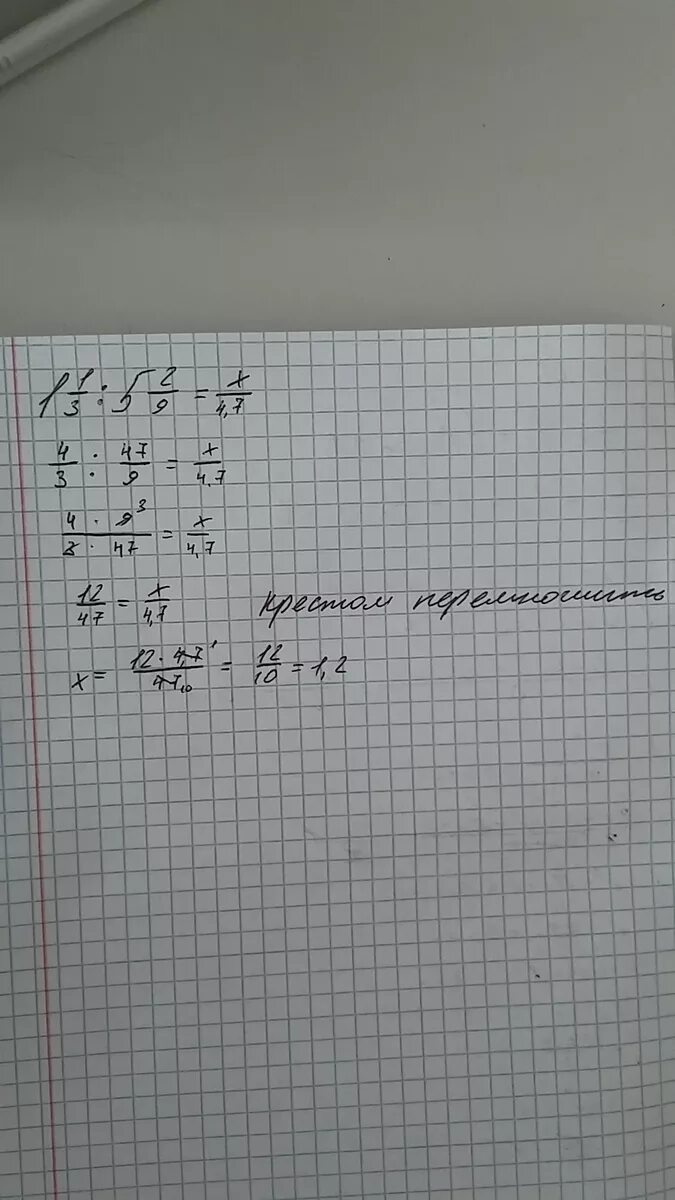 1 1/3 : 5 2/9 = x/4,7
4/3 : 47/9 = x/4,7
4 · 9³ / 3 · 47 = x/4,7
12/47 = x/4,7 Крестом перемножить
x = 12 · 4,7¹ / 47₁₀ = 12/10 = 1,2